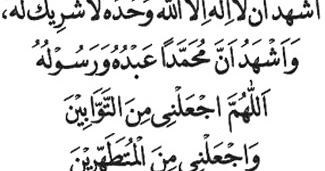 اَشْهَدُ اَنْ لَا اِلٰهَ اِلَّا اللّٰهُ وَحْدَهُ لَا شَرِيْكَ لَهُ،
وَاَشْهَدُ اَنَّ مُحَمَّدًا عَبْدُهُ وَرَسُوْلُهُ
اَللّٰهُمَّ اجْعَلْنِى مِنَ التَّوَّابِيْنَ
وَاجْعَلْنِى مِنَ الْمُتَطَهِّرِيْنَ